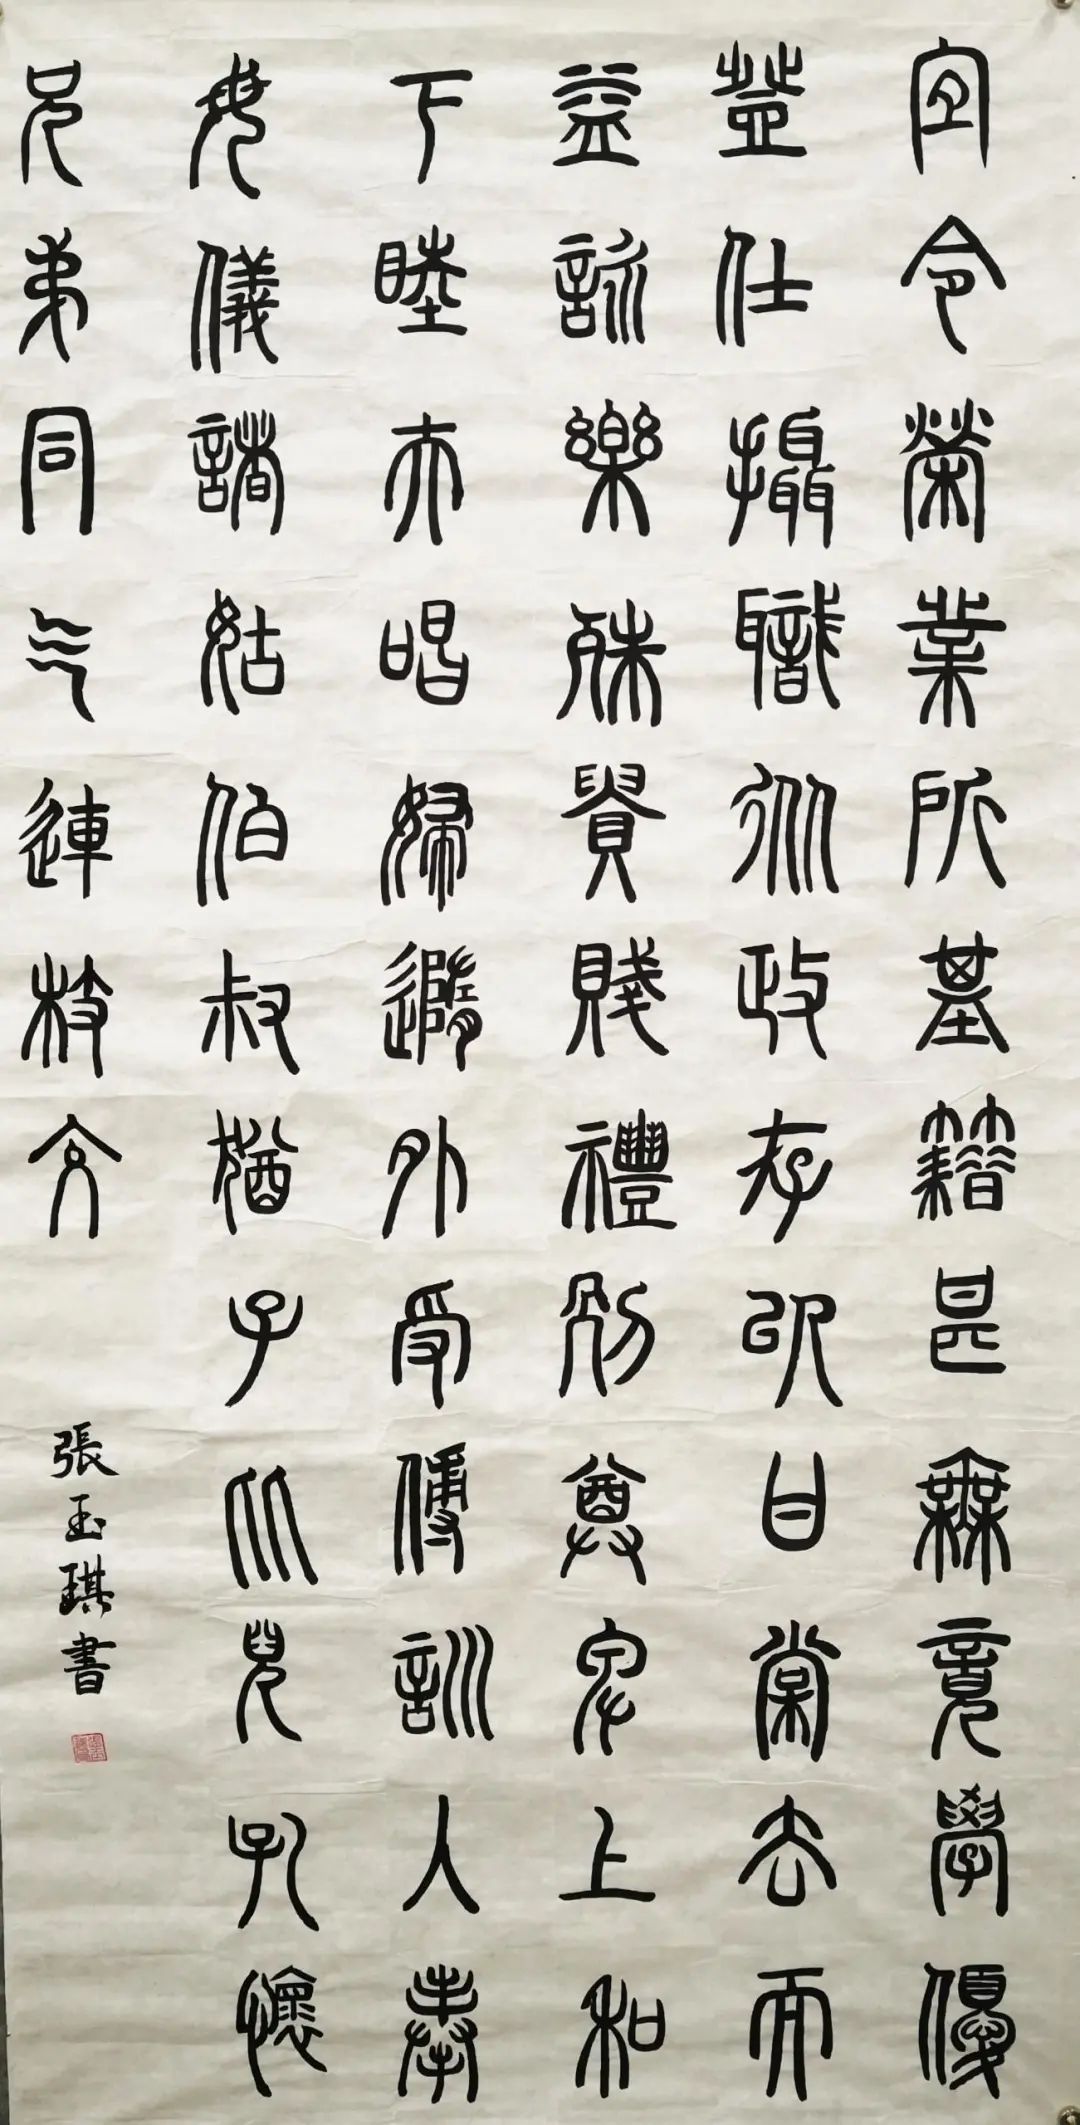 宜令榮業所基籍甚無竟學優
登仕攝職從政存以甘棠去而
益詠樂殊貴賤禮別尊卑上和
下睦夫唱婦隨外受傅訓入奉
母儀諸姑伯叔猶子比兒孔懷
兄弟同气連枝交
張玉琪書